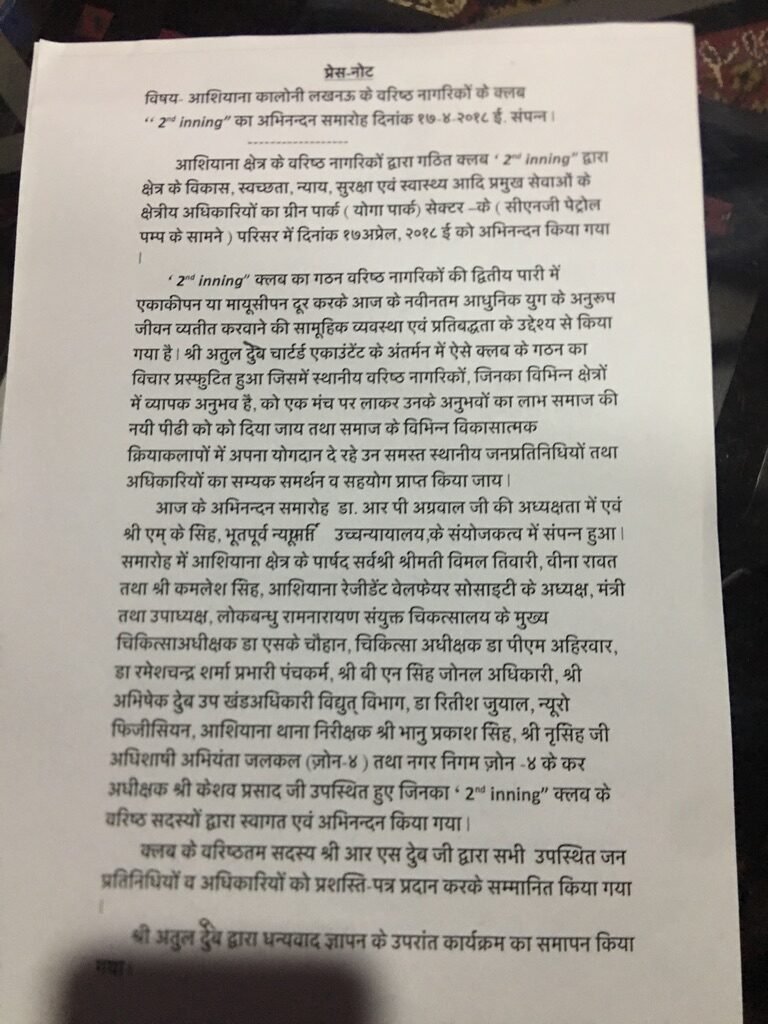 प्रेस-नोट
विषय- आशियाना कालोनी लखनऊ के वरिष्ठ नागरिकों के क्लब
“ 2nd inning” का अभिनन्दन समारोह दिनांक १७-४-२०१८ ई. संपन्न ।
--------------------
आशियाना क्षेत्र के वरिष्ठ नागरिकों द्वारा गठित क्लब ‘ 2nd inning” द्वारा
क्षेत्र के विकास, स्वच्छता, न्याय, सुरक्षा एवं स्वास्थ्य आदि प्रमुख सेवाओं के
क्षेत्रीय अधिकारियों का ग्रीन पार्क ( योगा पार्क) सेक्टर –के ( सीएनजी पेट्रोल
पम्प के सामने ) परिसर में दिनांक १७अप्रेल, २०१८ ई को अभिनन्दन किया गया
।
‘ 2nd inning” क्लब का गठन वरिष्ठ नागरिकों की द्वितीय पारी में
एकाकीपन या मायूसीपन दूर करके आज के नवीनतम आधुनिक युग के अनुरूप
जीवन व्यतीत करवाने की सामूहिक व्यवस्था एवं प्रतिबद्धता के उद्देश्य से किया
गया है। श्री अतुल देब चार्टर्ड एकाउंटेंट के अंतर्मन में ऐसे क्लब के गठन का
विचार प्रस्फुटित हुआ जिसमें स्थानीय वरिष्ठ नागरिकों, जिनका विभिन्न क्षेत्रों
में व्यापक अनुभव है, को एक मंच पर लाकर उनके अनुभवों का लाभ समाज की
नयी पीढी को को दिया जाय तथा समाज के विभिन्न विकासात्मक
क्रियाकलापों में अपना योगदान दे रहे उन समस्त स्थानीय जनप्रतिनिधियों तथा
अधिकारियों का सम्यक समर्थन व सहयोग प्राप्त किया जाय।
आज के अभिनन्दन समारोह डा. आर पी अग्रवाल जी की अध्यक्षता में एवं
श्री एम् के सिह, भूतपूर्व उच्चन्यायालय,के संयोजकत्व में संपन्न हुआ।
समारोह में आशियाना क्षेत्र के पार्षद सर्वश्री श्रीमती विमल तिवारी, वीना रावत
तथा श्री कमलेश सिह, आशियाना रेजीडेंट वेलफेयर सोसाइटी के अध्यक्ष, मंत्री
तथा उपाध्यक्ष, लोकबन्धु रामनारायण संयुक्त चिकत्सालय के मुख्य
चिकित्साअधीक्षक डा एसके चौहान, चिकित्सा अधीक्षक डा पीएम अहिरवार,
डा रमेशचन्द्र शर्मा प्रभारी पंचकर्म, श्री बी एन सिह जोनल अधिकारी, श्री
अभिषेक देब उप खंडअधिकारी विद्युत् विभाग, डा रितीश जुयाल, न्यूरो
फिजीसियन, आशियाना थाना निरीक्षक श्री भानु प्रकाश सिह, श्री नृसिह जी
अधिशाषी अभियंता जलकल (ज़ोन-४ ) तथा नगर निगम ज़ोन -४ के कर
अधीक्षक श्री केशव प्रसाद जी उपस्थित हुए जिनका ‘ 2nd inning” क्लब के
वरिष्ठ सदस्यों द्वारा स्वागत एवं अभिनन्दन किया गया।
क्लब के वरिष्ठतम सदस्य श्री आर एस देब जी द्वारा सभी उपस्थित जन
प्रतिनिधियों व अधिकारियों को प्रशस्ति-पत्र प्रदान करके सम्मानित किया गया
।
श्री अतुल देब द्वारा धन्यवाद ज्ञापन के उपरांत कार्यक्रम का समापन किया
गया।